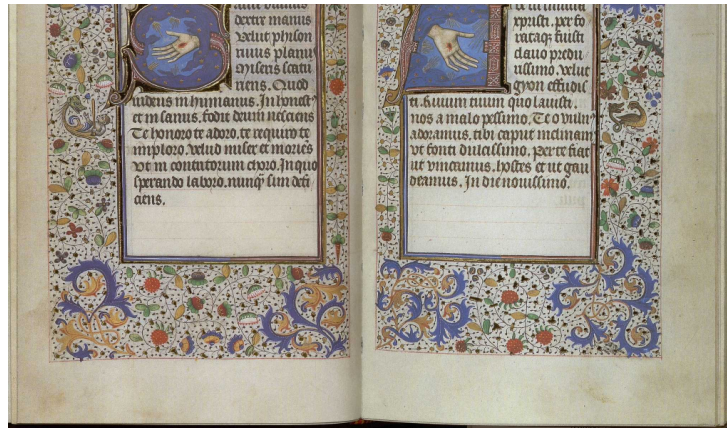 dexter manus
Velut phison
riuus planu
Miseris scatu
riens. Quod
iudeus in humanus. In honest
et in sanus. fodit deum nesciens
Te honoro te adoro, te require te
imploro, velud miser et moriens
ut in contentorum choro. In quo
sperando laboro. nunq̃ sum defi
ciens.
xpisti. per fo
rataq̃ fuisti
clauo predu
rissimo. Velut
gyon effudic
ti. Riuum tuum quo lauisti.
nos a malo pessimo. Te o vuln
adoramus. tibi caput inclinam
ut fonti dulcissimo. per te fiat
ut vincamus. hostes et ut gau
deamus. In die nouissimo.